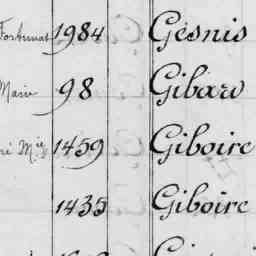 Fortunat 1984 Gesnis
Marie 98 Gibard
Mie 1459 Giboire
1435 Giboire